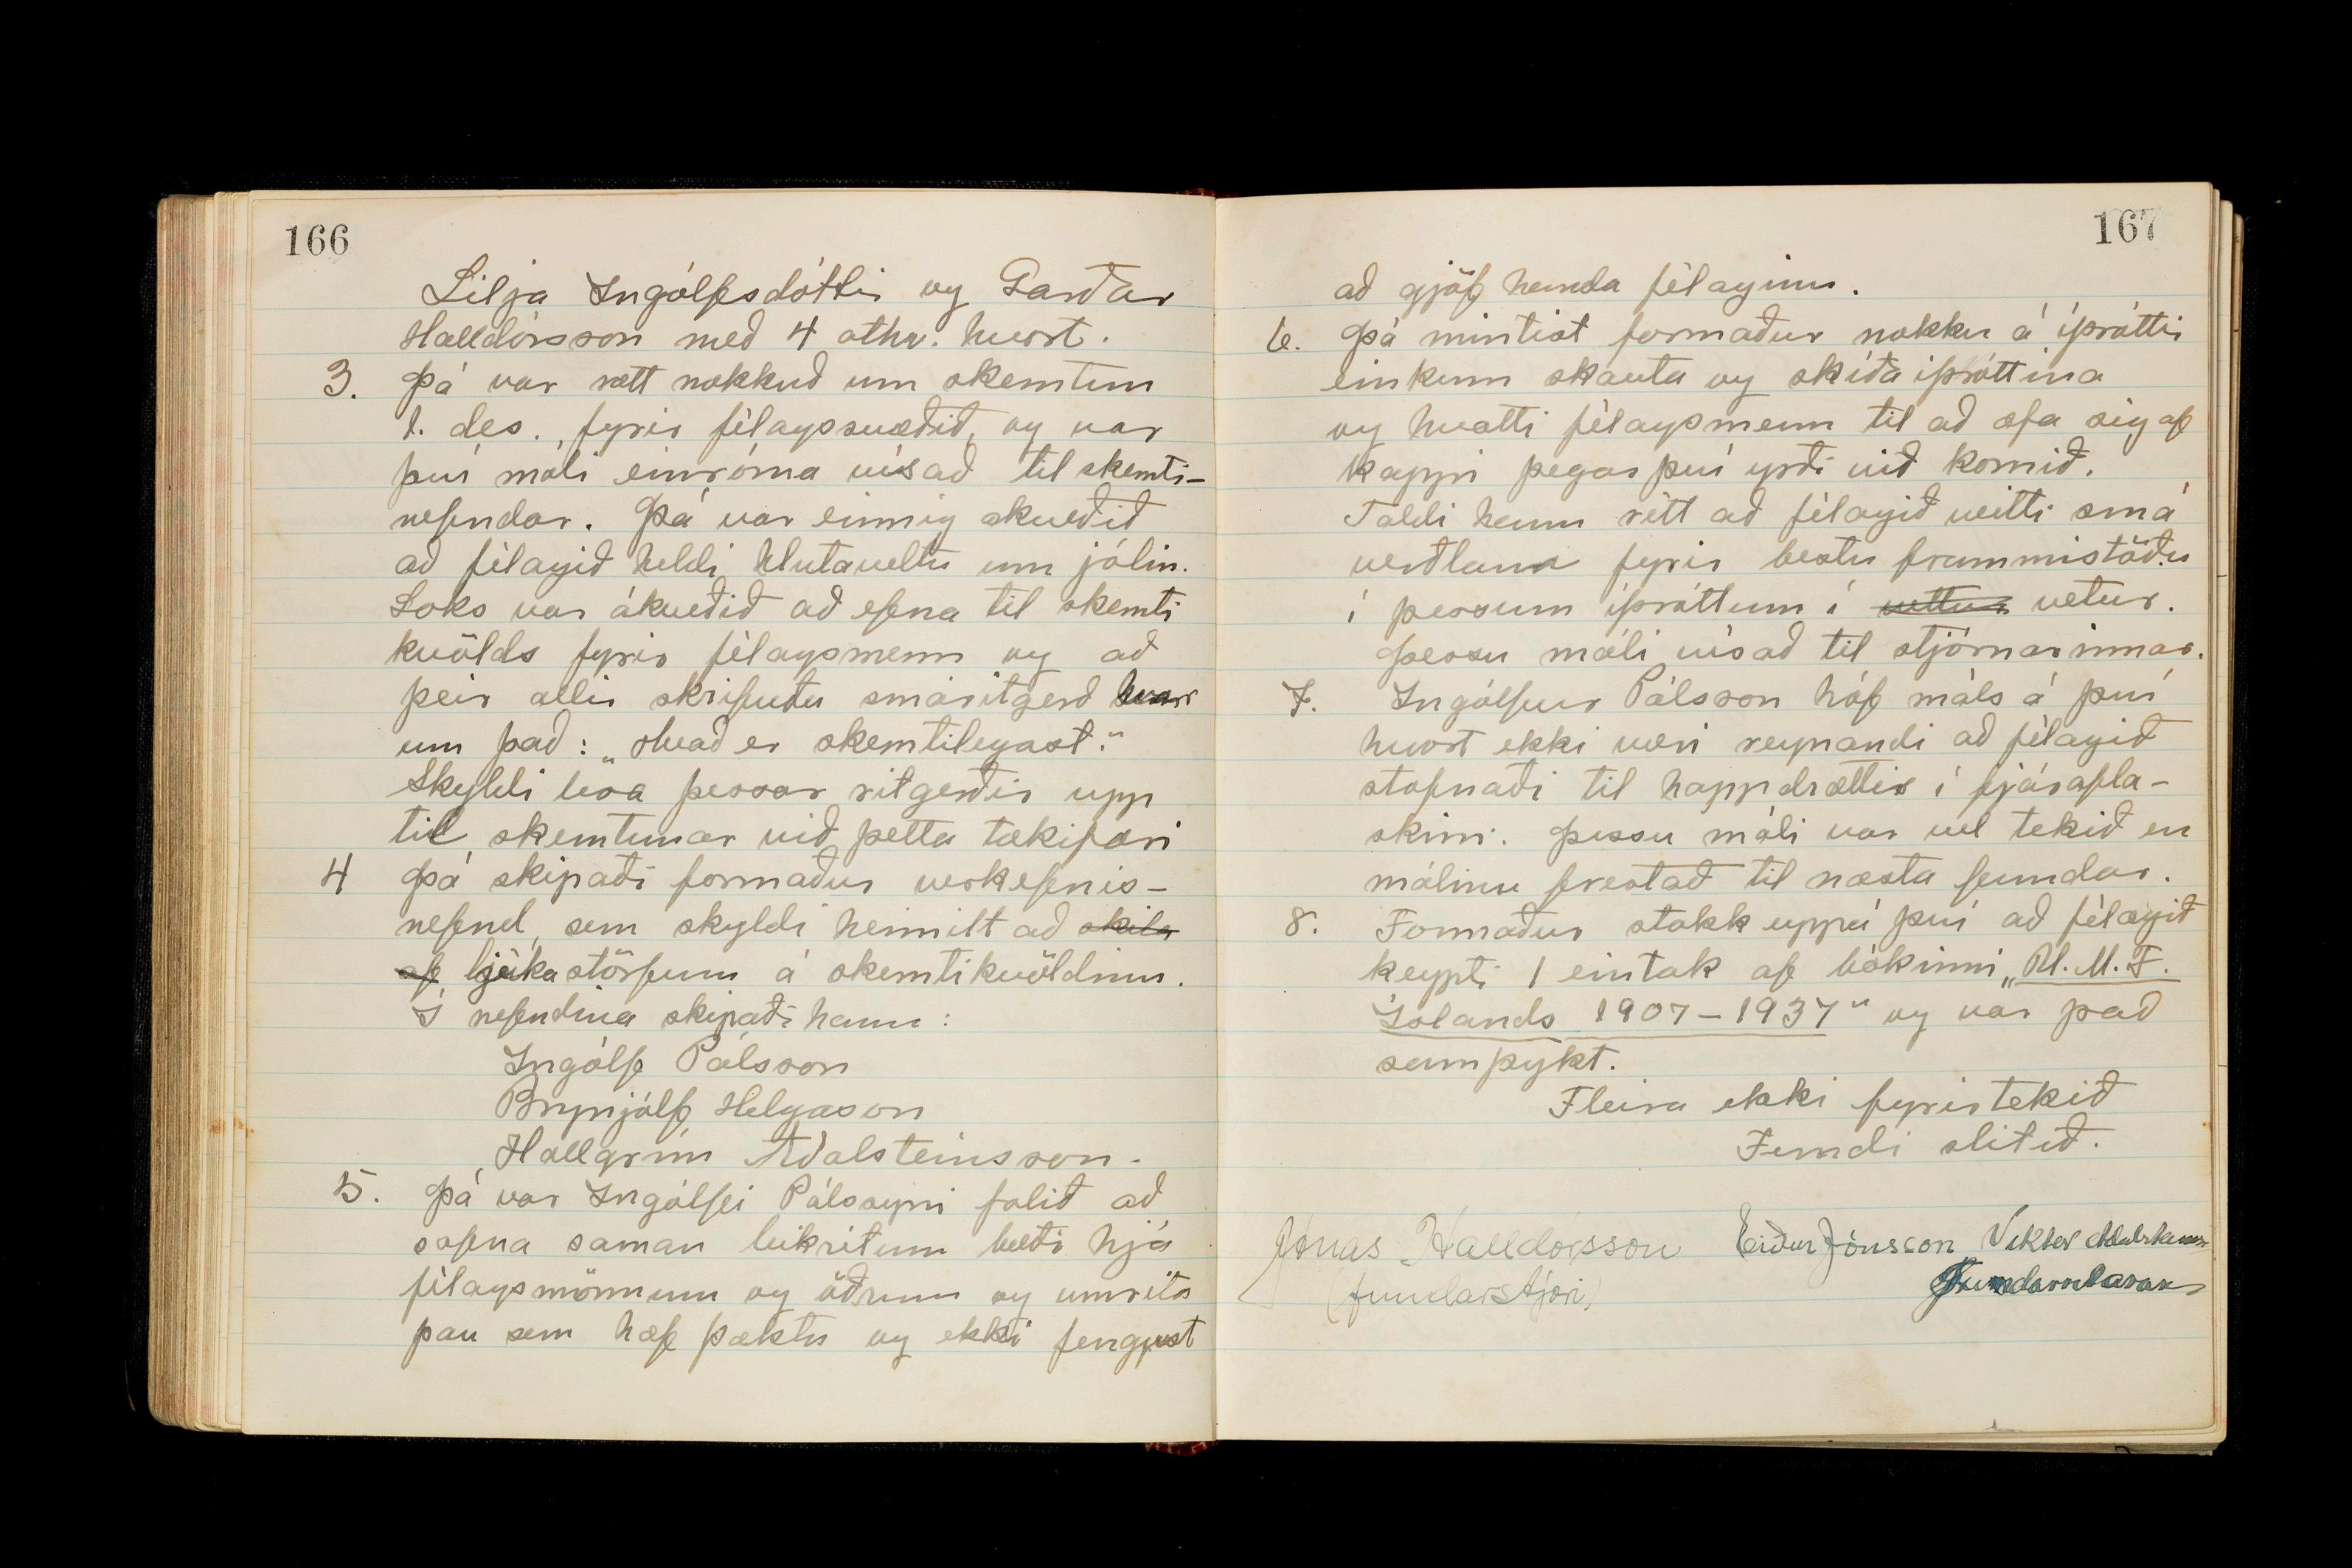 166
Lilja Ingólfsdóttir og Garðar
Halldórsson með 4 athv. hvort.
3. Þá var rætt nokkuð um skemtun
1. des., fyrir félagssvæðið, og var
því máli einróma vísað til skemti-
nefndar. Þá var einnig ákveðið
að félagið heldi hlutaveltu um jólin.
Loks var ákveðið að efna til skemti
kvölds fyrir félagsmenn og að
þeir allir skrifuðu smáritgerð hver
um það: „Hvað er skemtilegast.“
Skyldi lesa þessar ritgerðir upp
til skemtunar við þetta tækifæri
4 Þá skipaði formaður verkefnis-
nefnd, sem skyldi heimilt að skila
af ljúka störfum á skemtikvöldinu.
Í nefndina skipaði hann:
Ingólf Pálsson
Brynjólf Helgason
Hallgrím Aðalsteinsson.
5. Þá var Ingólfi Pálssyni falið að
safna saman leikritum bæði hjá
félagsmönnum og öðrum og umrita
þau sem hæf þæktu og ekki fengjust
167
að gjöf handa félaginu.
6. Þá mintist formaður nokku á íþróttir
einkum skauta og skíða íþróttina
og hvatti félagsmenn til að æfa sig af
kappi þegar því yrði við komið.
Taldi hann rétt að félagið veitti smá
verðlaun fyrir bestu frammistöðu
í þessum íþróttum í vettur vetur.
Þessu máli vísað til stjórnarinnar.
7. Ingólfur Pálsson hóf máls á því
hvort ekki væri reynandi að félagið
stofnaði til happdrættis í fjárafla-
skini. Þessu máli var vel tekið en
málinu frestað til næsta fundar.
8. Formaður stakk uppá því að félagið
keypti 1 eintak af bókinni „U.M.F.
Íslands 1907-1937“ og var það
samþykt.
Fleira ekki fyrirtekið
Fundi slitið.
Jónas Halldórsson Eiður Jónsson Viktor
(fundarstjóri)